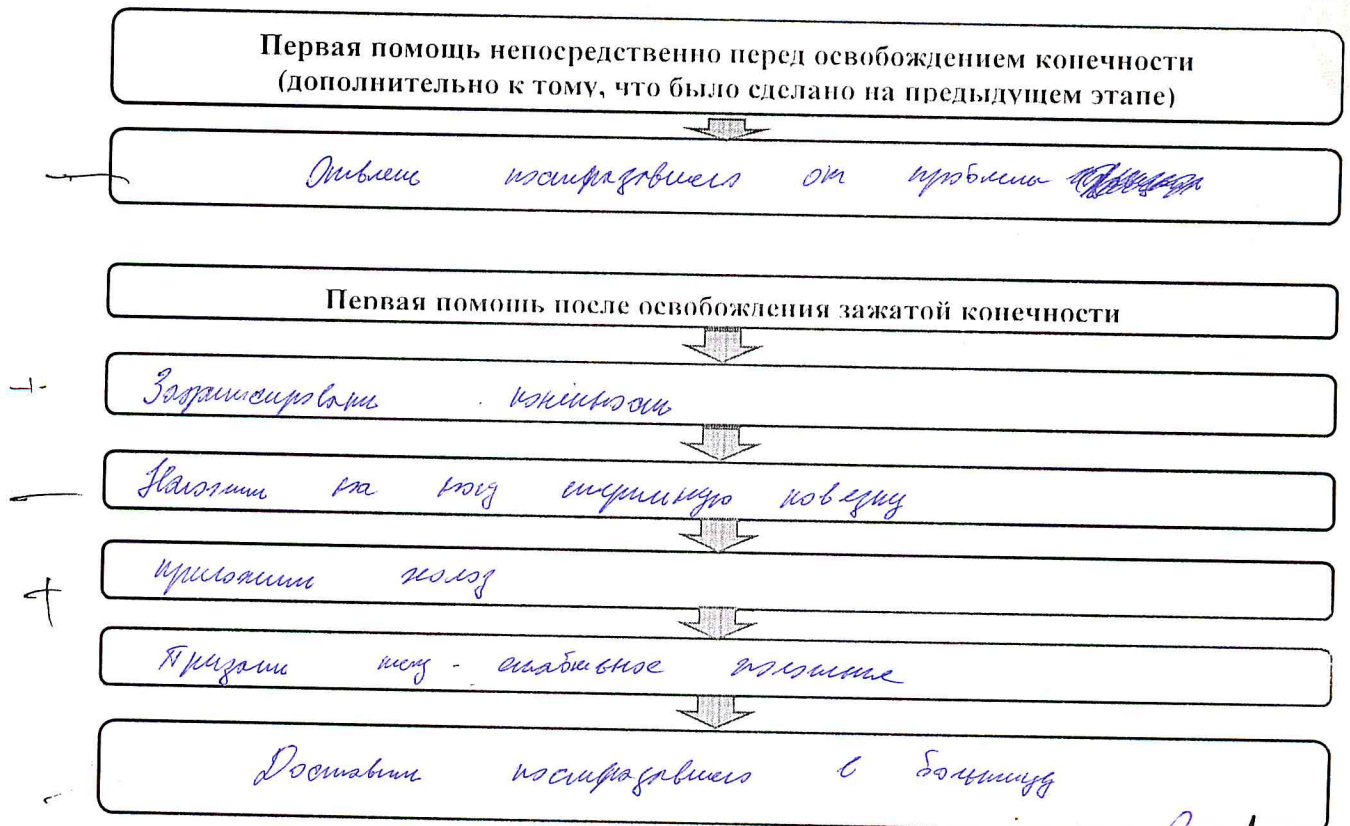 Первая помощь непосредственно перед освобождением конечности
(дополнительно к тому, что было сделано на предыдущем этапе)
Отвлечь пострадавшего от проблемы
Первая помощь после освобождения зажатой конечности
+- Зафиксировать конечность
— Наложить на повязку
+ приложить холод
Придать стабильное положение
Доставить пострадавшего в больницу